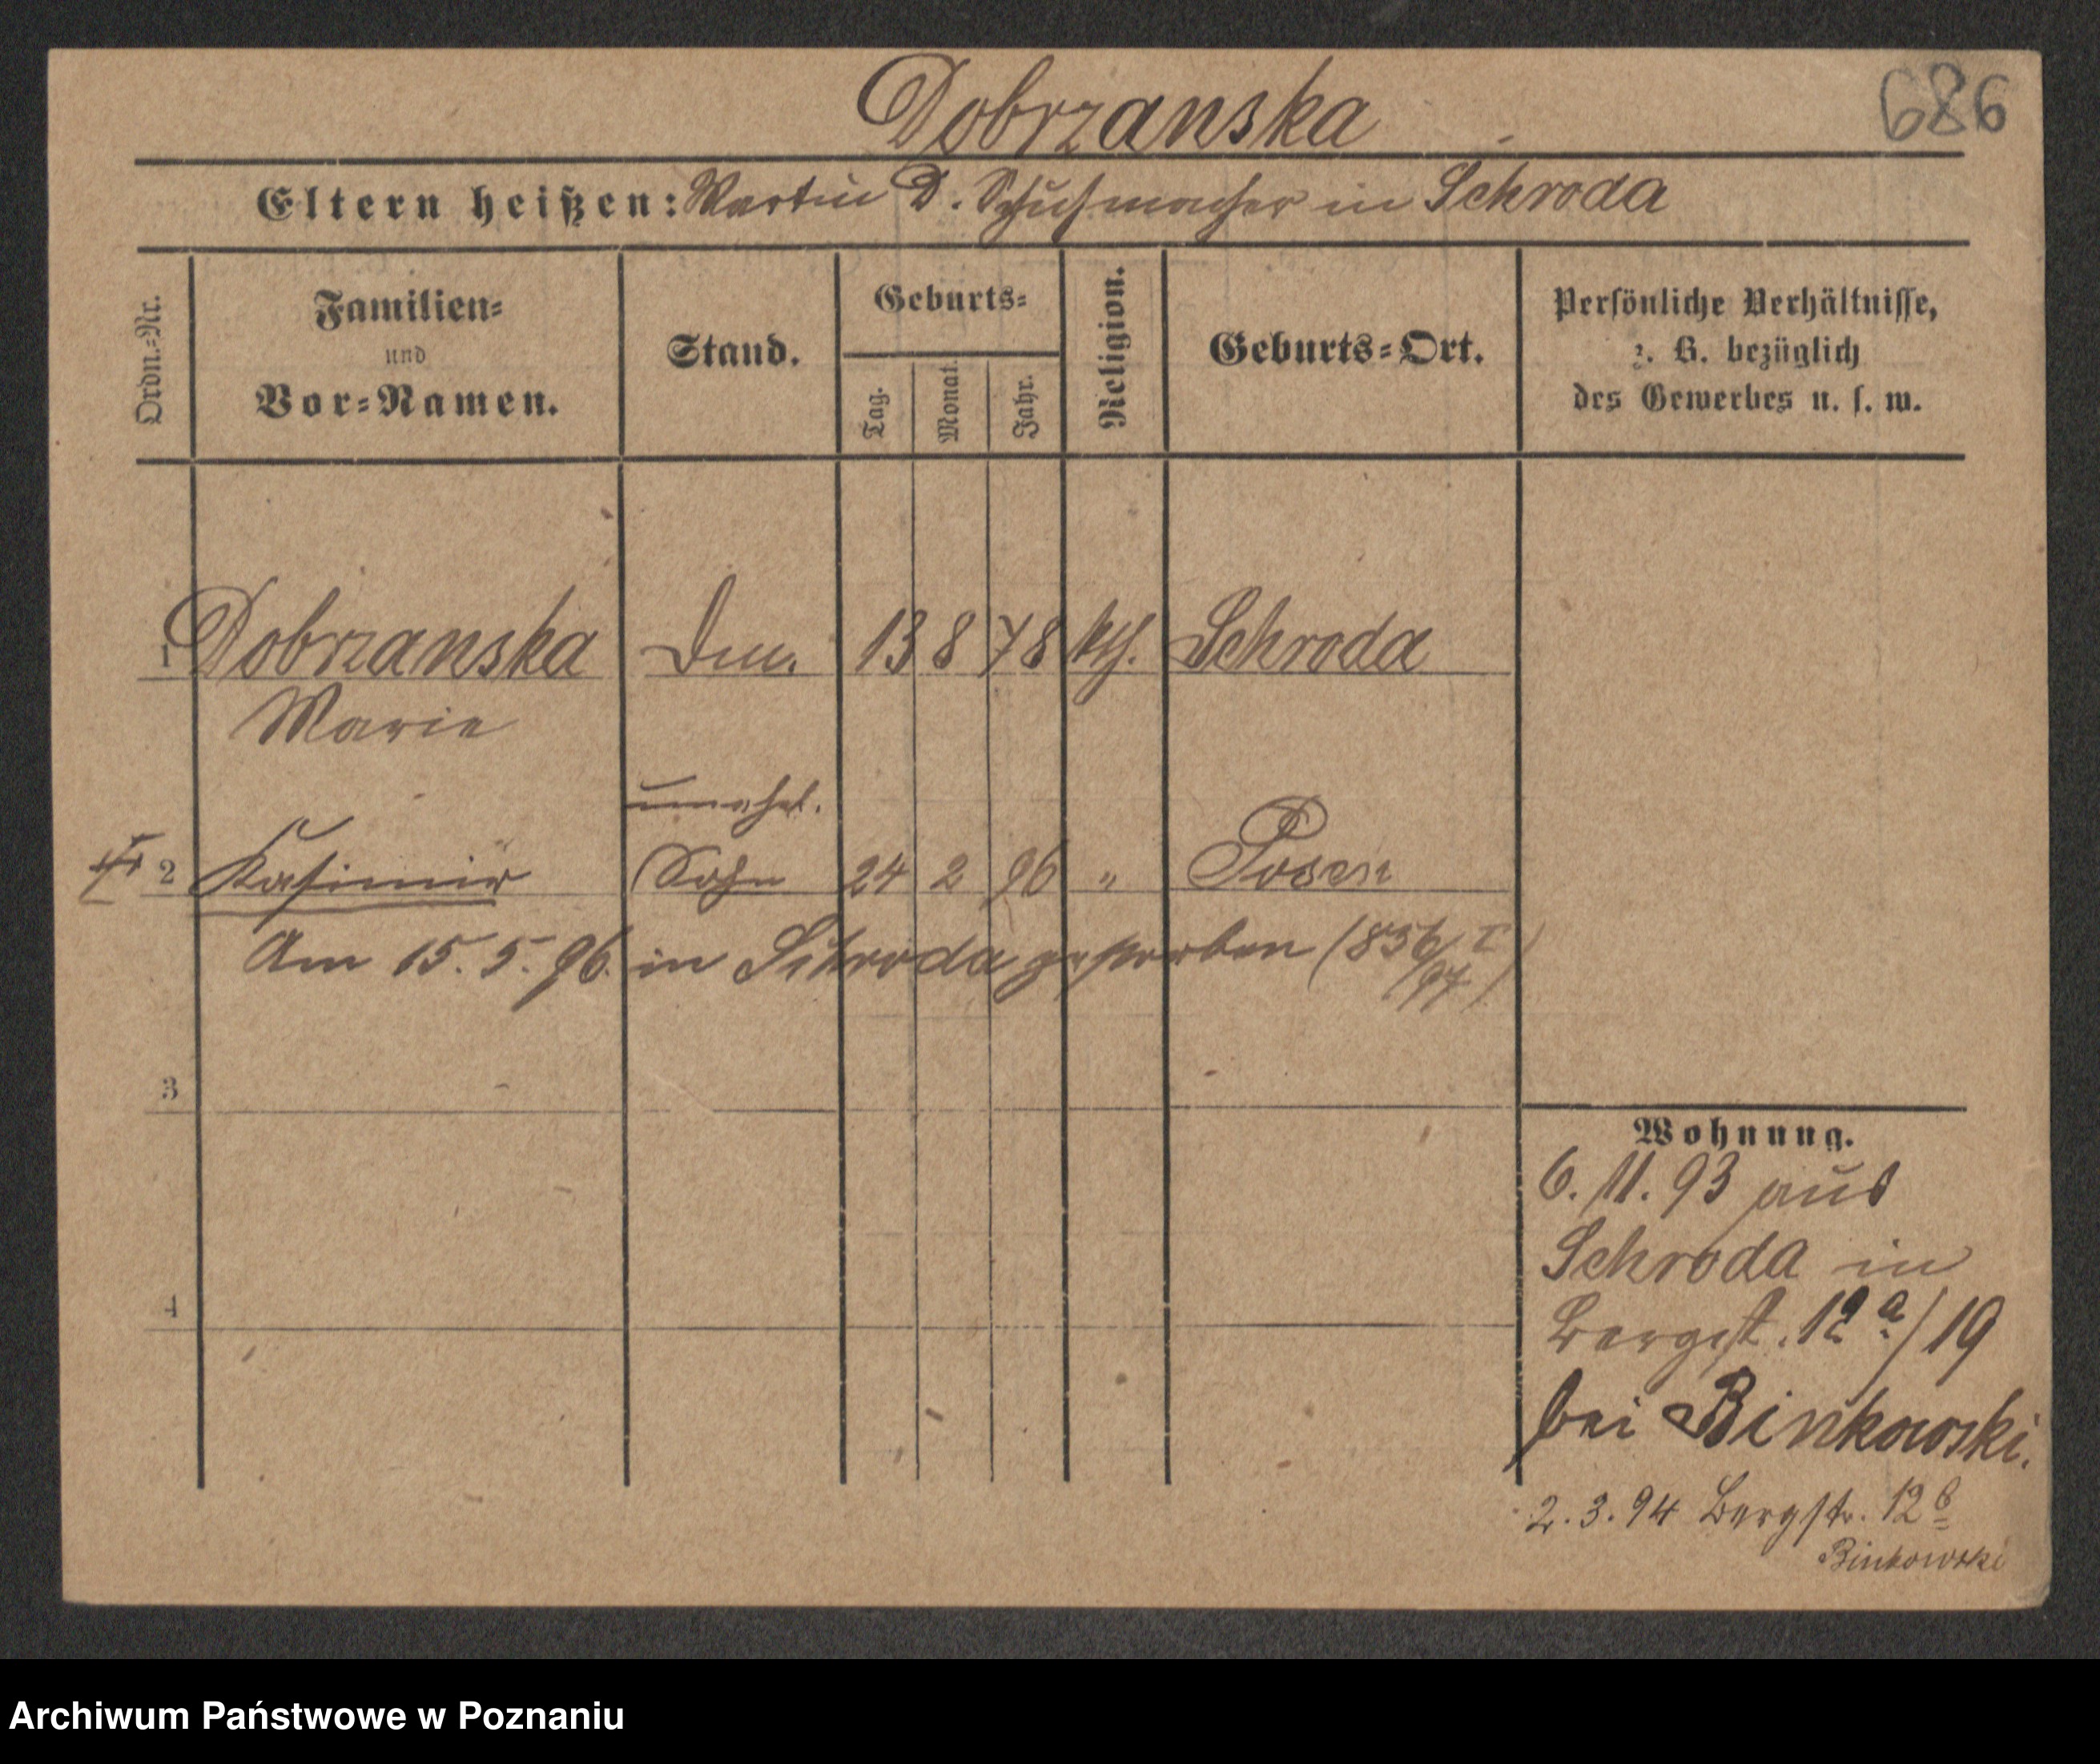 Dobrzanska
686
Eltern heißen: Martin D. Schuhmacher in Schroda
Ordn.-Nr.
Familien-
und
Vor-Namen.
Stand.
Geburts-
Tag.
Monat.
Jahr.
Religion.
Geburts-Ort.
Persönliche Verhältnisse,
z. B. bezüglich
des Gewerbes u. s. w.
1 Dobrzanska 13 8 78 kth. Schroda
Marie
unehel.
2 Kasimir Sohn 24 2 96 " Posen
Am 15. 5. 96. in Schroda gestorben (836/I
/97)
3
4
Wohnung.
6. 11. 93 aus
Schroda in
Bergst. 12a/19
bei Binkowski.
2. 3. 94 Bergstr. 12b
Binkowski
Archiwum Państwowe w Poznaniu